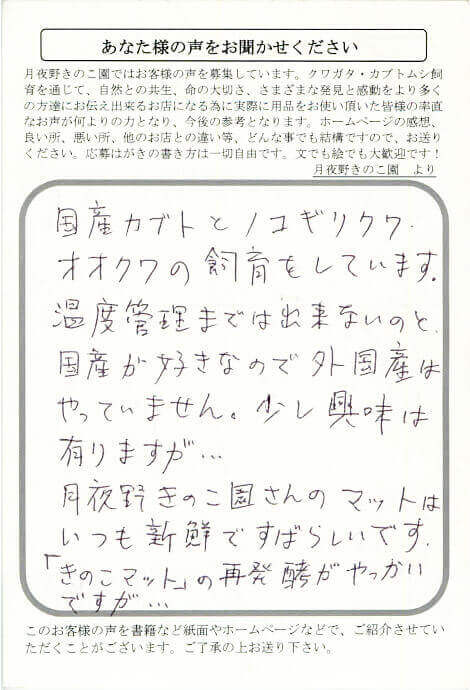 あなた様の声をお聞かせください
月夜野きのこ園ではお客様の声を募集しています。クワガタ・カブトムシ飼
育を通じて、自然との共生、命の大切さ、さまざまな発見と感動をより多く
の方達にお伝え出来るお店になる為に実際に用品をお使い頂いた皆様の率直
なお声が何よりの力となり、今後の参考となります。ホームページの感想、
良い所、悪い所、他のお店との違い等、どんな事でも結構ですので、お送り
ください。応募はがきの書き方は一切自由です。文でも絵でも大歓迎です！
月夜野きのこ園　より
国産カブトとノコギリクワ・
オオクワの飼育をしています。
温度管理までは出来ないのと、
国産が好きなので外国産は
やっていません。少し興味は
有りますが…
月夜野きのこ園さんのマットは
いつも新鮮ですばらしいです。
「きのこマット」の再発酵がやっかい
ですが…
このお客様の声を書籍など紙面やホームページなどで、ご紹介させてい
ただくことがございます。ご了承の上お送り下さい。